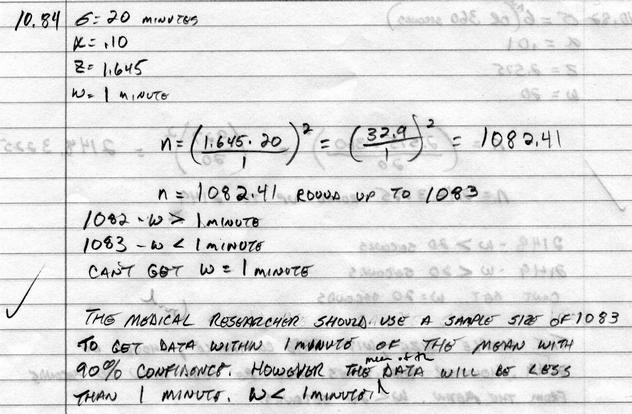 10.84 σ = 20 MINUTES
α = .10
Z = 1.645
W = 1 MINUTE
n = (1.645 · 20 / 1)² = (32.9 / 1)² = 1082.41
n = 1082.41 ROUND UP TO 1083
1082 - W > 1 MINUTE
1083 - W < 1 MINUTE
CAN'T GET W = 1 MINUTE
✓
THE MEDICAL RESEARCHER SHOULD USE A SAMPLE SIZE OF 1083
TO GET DATA WITHIN 1 MINUTE OF THE MEAN WITH
90% CONFIDENCE. HOWEVER THE mean of the DATA WILL BE LESS
THAN 1 MINUTE. W < 1 MINUTE.